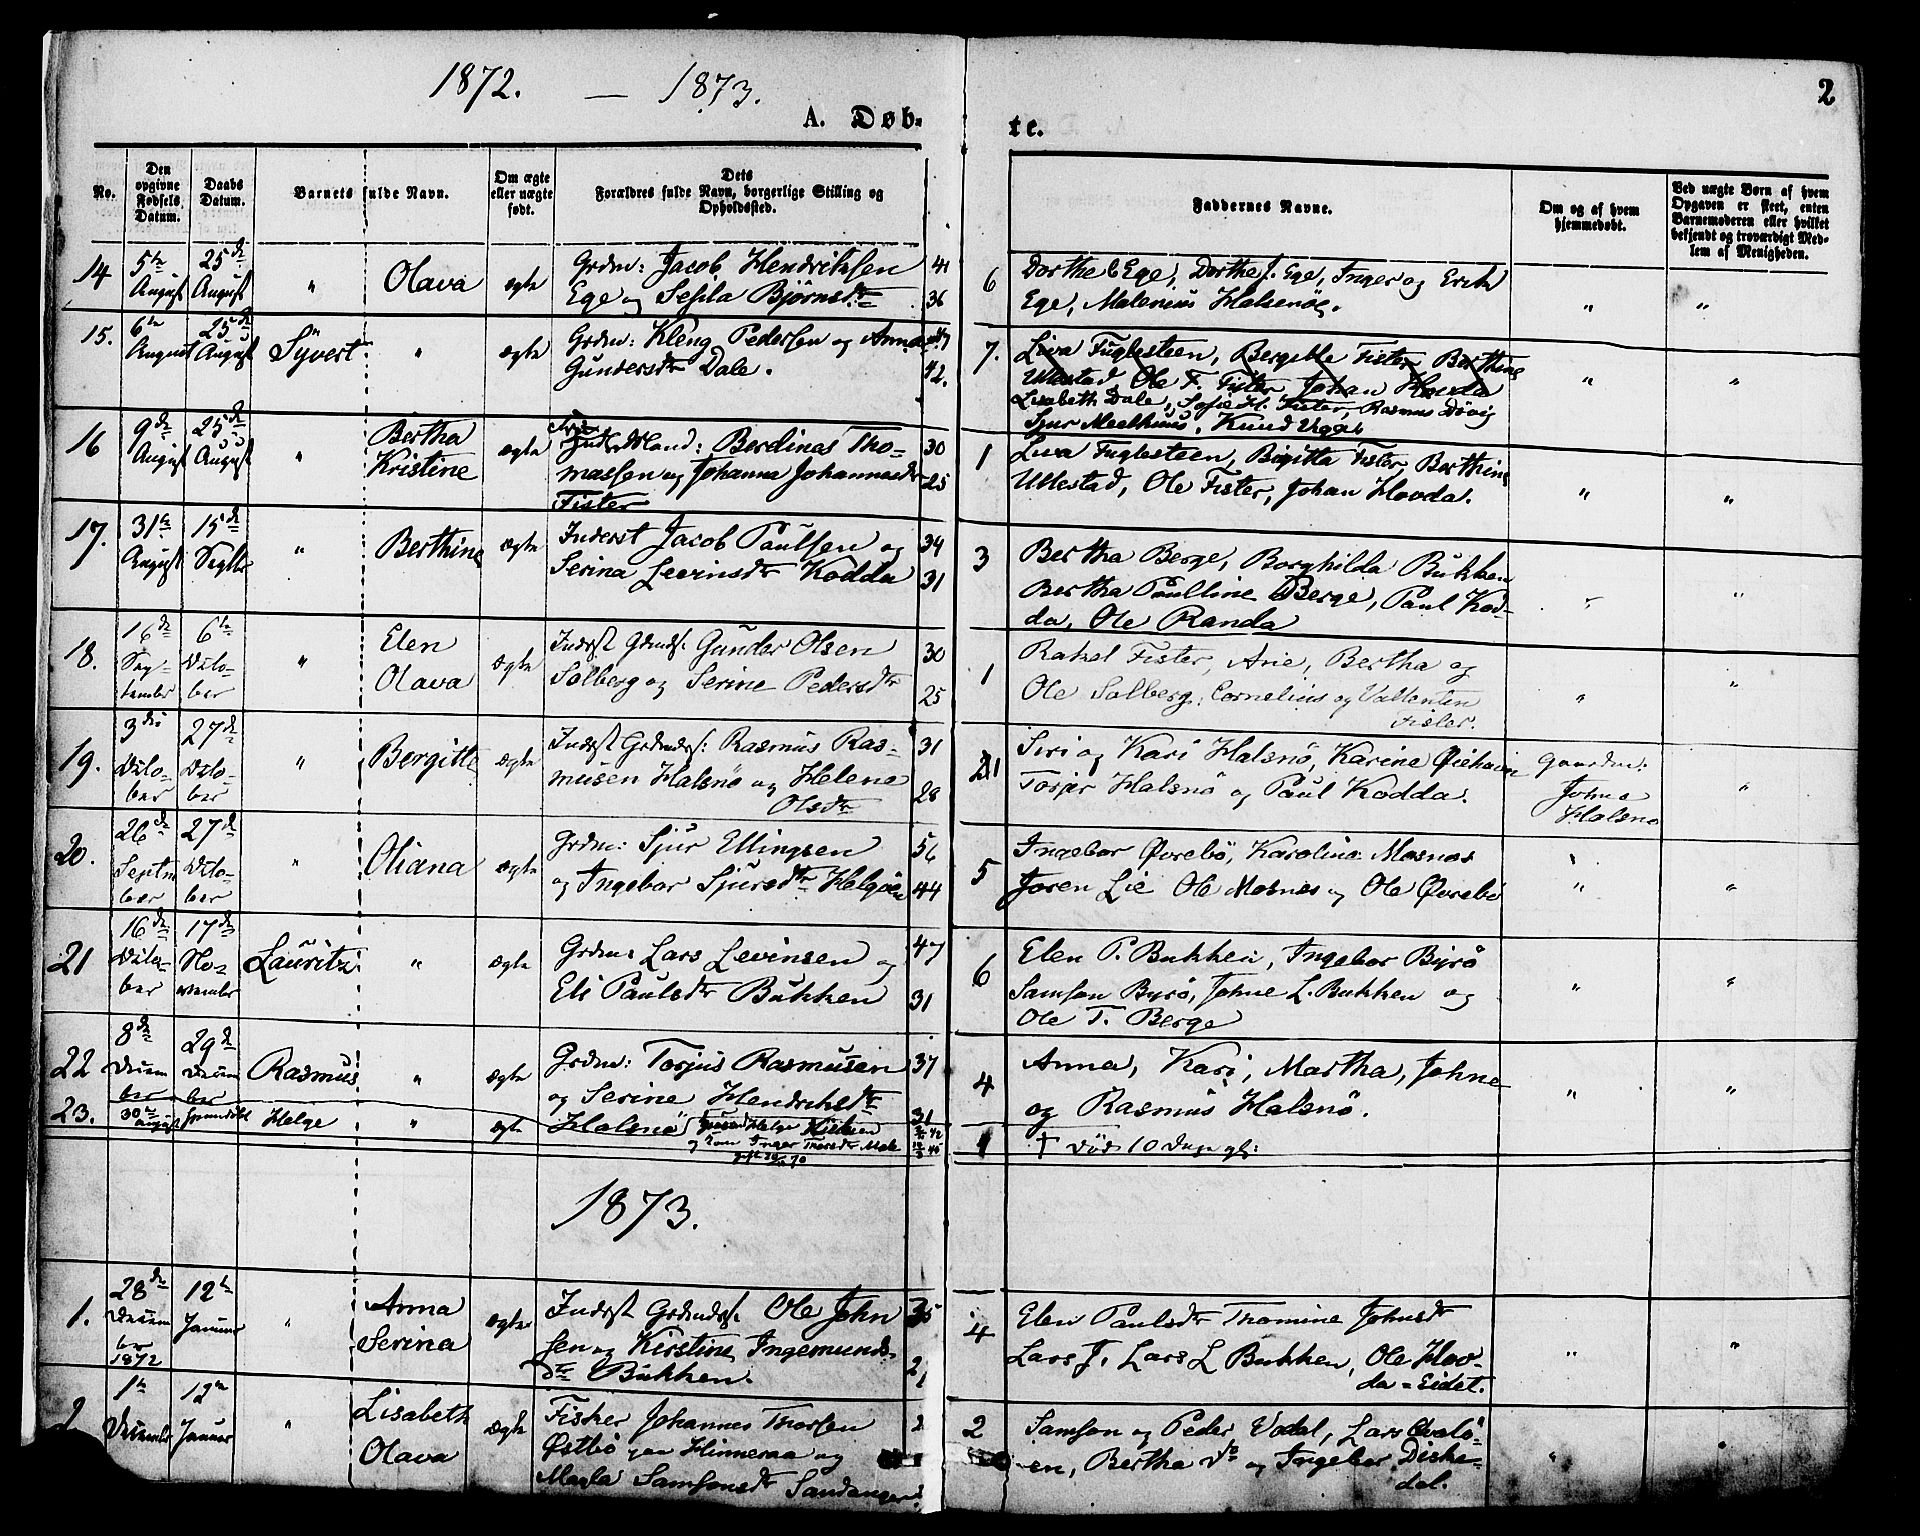 1872. — 1873.
2
A. Døb-
te.
No.
Den opgivne Fødsels Datum.
Daabs Datum.
Barnets fulde Navn.
Om ægte eller uægte født.
Dets Forældres fulde Navn, borgerlige Stilling og Opholdssted.
Faddernes Navne.
Om og af hvem hjemmedøbt.
Ved uægte Børn af hvem Opgaven er skeet, enten Barnemoderen eller hvilket bekjendt og troværdigt Medlem af Menigheden.
14 5te August 25de August " Olava ægte Grdm: Jacob Hendriksen 41
Ege og Bjørnsdtr 36
6 Dorthe Ege, Dorthe J. Ege, Inger og Erik
Ege, Malenius Halsnöe. " "
15. 6te August 25de August Syvert " ægte Grdm: Kleng Pedersen og Anna 47
Gundersdtr Dale. 42.
7. Liva Fuglesteen, Bergitte Fister, Berthine
Ullestad, Ole F. Fister, Johan Hovda
Lisabeth Dale, Sofie H. Fister, Rasmus Døvig
Sjur Meelhuus, Knud " "
16 9de August 25de August " Bertha Kristine ægte Berdinas Tho- 30
massen og Johanna Johannesdtr 25
Fister
1 Liva Fuglesteen, Birgitta Fister, Berthine
Ullestad, Ole Fister, Johan Hovda. " "
17. 31te August 15de Septbr " Berthine Ægte Inderst Jacob Paulsen og 34
Serina Levinsdtr Kodda 31
3 Bertha Berge, Borghilda Bukken
Bertha Paulline Berge, Paul Kod-
da, Ole Randa " "
18. 16de September 6te Oktober " Elen Olava Ægte Inderst Gunder Olsen 30
Solberg og Serine Pedersdtr 25
1 Rakel Fister, Arie, Bertha og
Ole Solberg, Cornelius og Vallenten
Fister. " "
19. 3die Oktober 27de Oktober " Bergitte ægte Inderst Rasmus Ras- 31
musen Halsnö og Helene 28
Olsdtr
1 Siri og Kari Halsnö, Karine
Torjer Halsnö og Paul Kodda. Gaardm: Johne Halsnö "
20. 26de September 27de Oktober " Oliana ægte Grdm: Sjur Ellingsen 56
og Ingebor Sjursdtr Helgöen 44
5 Ingebor Øvrebö, Karolina Mosnas
Joren Lie Ole Mosnas og Ole Øvrebö " "
21 16de Oktober 17de November Lauritz " ægte Grdm: Lars Levinsen og 47
Eli Paulsdtr Bukken 31
6 Elen P. Bukken, Ingebor Byrö
Samson Byrö, Johne L. Bukken og
Ole T. Berge " "
22 8de December 29de December Rasmus " ægte Grdm: Torjus Rasmusen 37
og Serine Hendriksdtr 31
Halsnö
4 Anna, Kari, Martha, Johne
og Rasmus Halsnö. " "
23. 30te August Helge " ægte Helge
Inger
1 † Död 10 Dage gl:
1873.
1. 28de December 1872 12te Januar " Anna Serina ægte Inderst Ole John 35
sen og Kirstine Ingemunds-
dtr Bukken.
4 Elen Paulsdtr Thomine Johnsdtr
Lars J. Lars L Bukken, Ole Hov-
da-Eidet. " "
2. 1te December 12te Januar " Lisabeth Olava ægte Fisker Johannes Thorsen
Östbö paa Hinneraa og
Samsonsdtr Sandanger
2 Samson og Peder Vadal, Lars
en, Bertha do og Ingebor
dal. " "